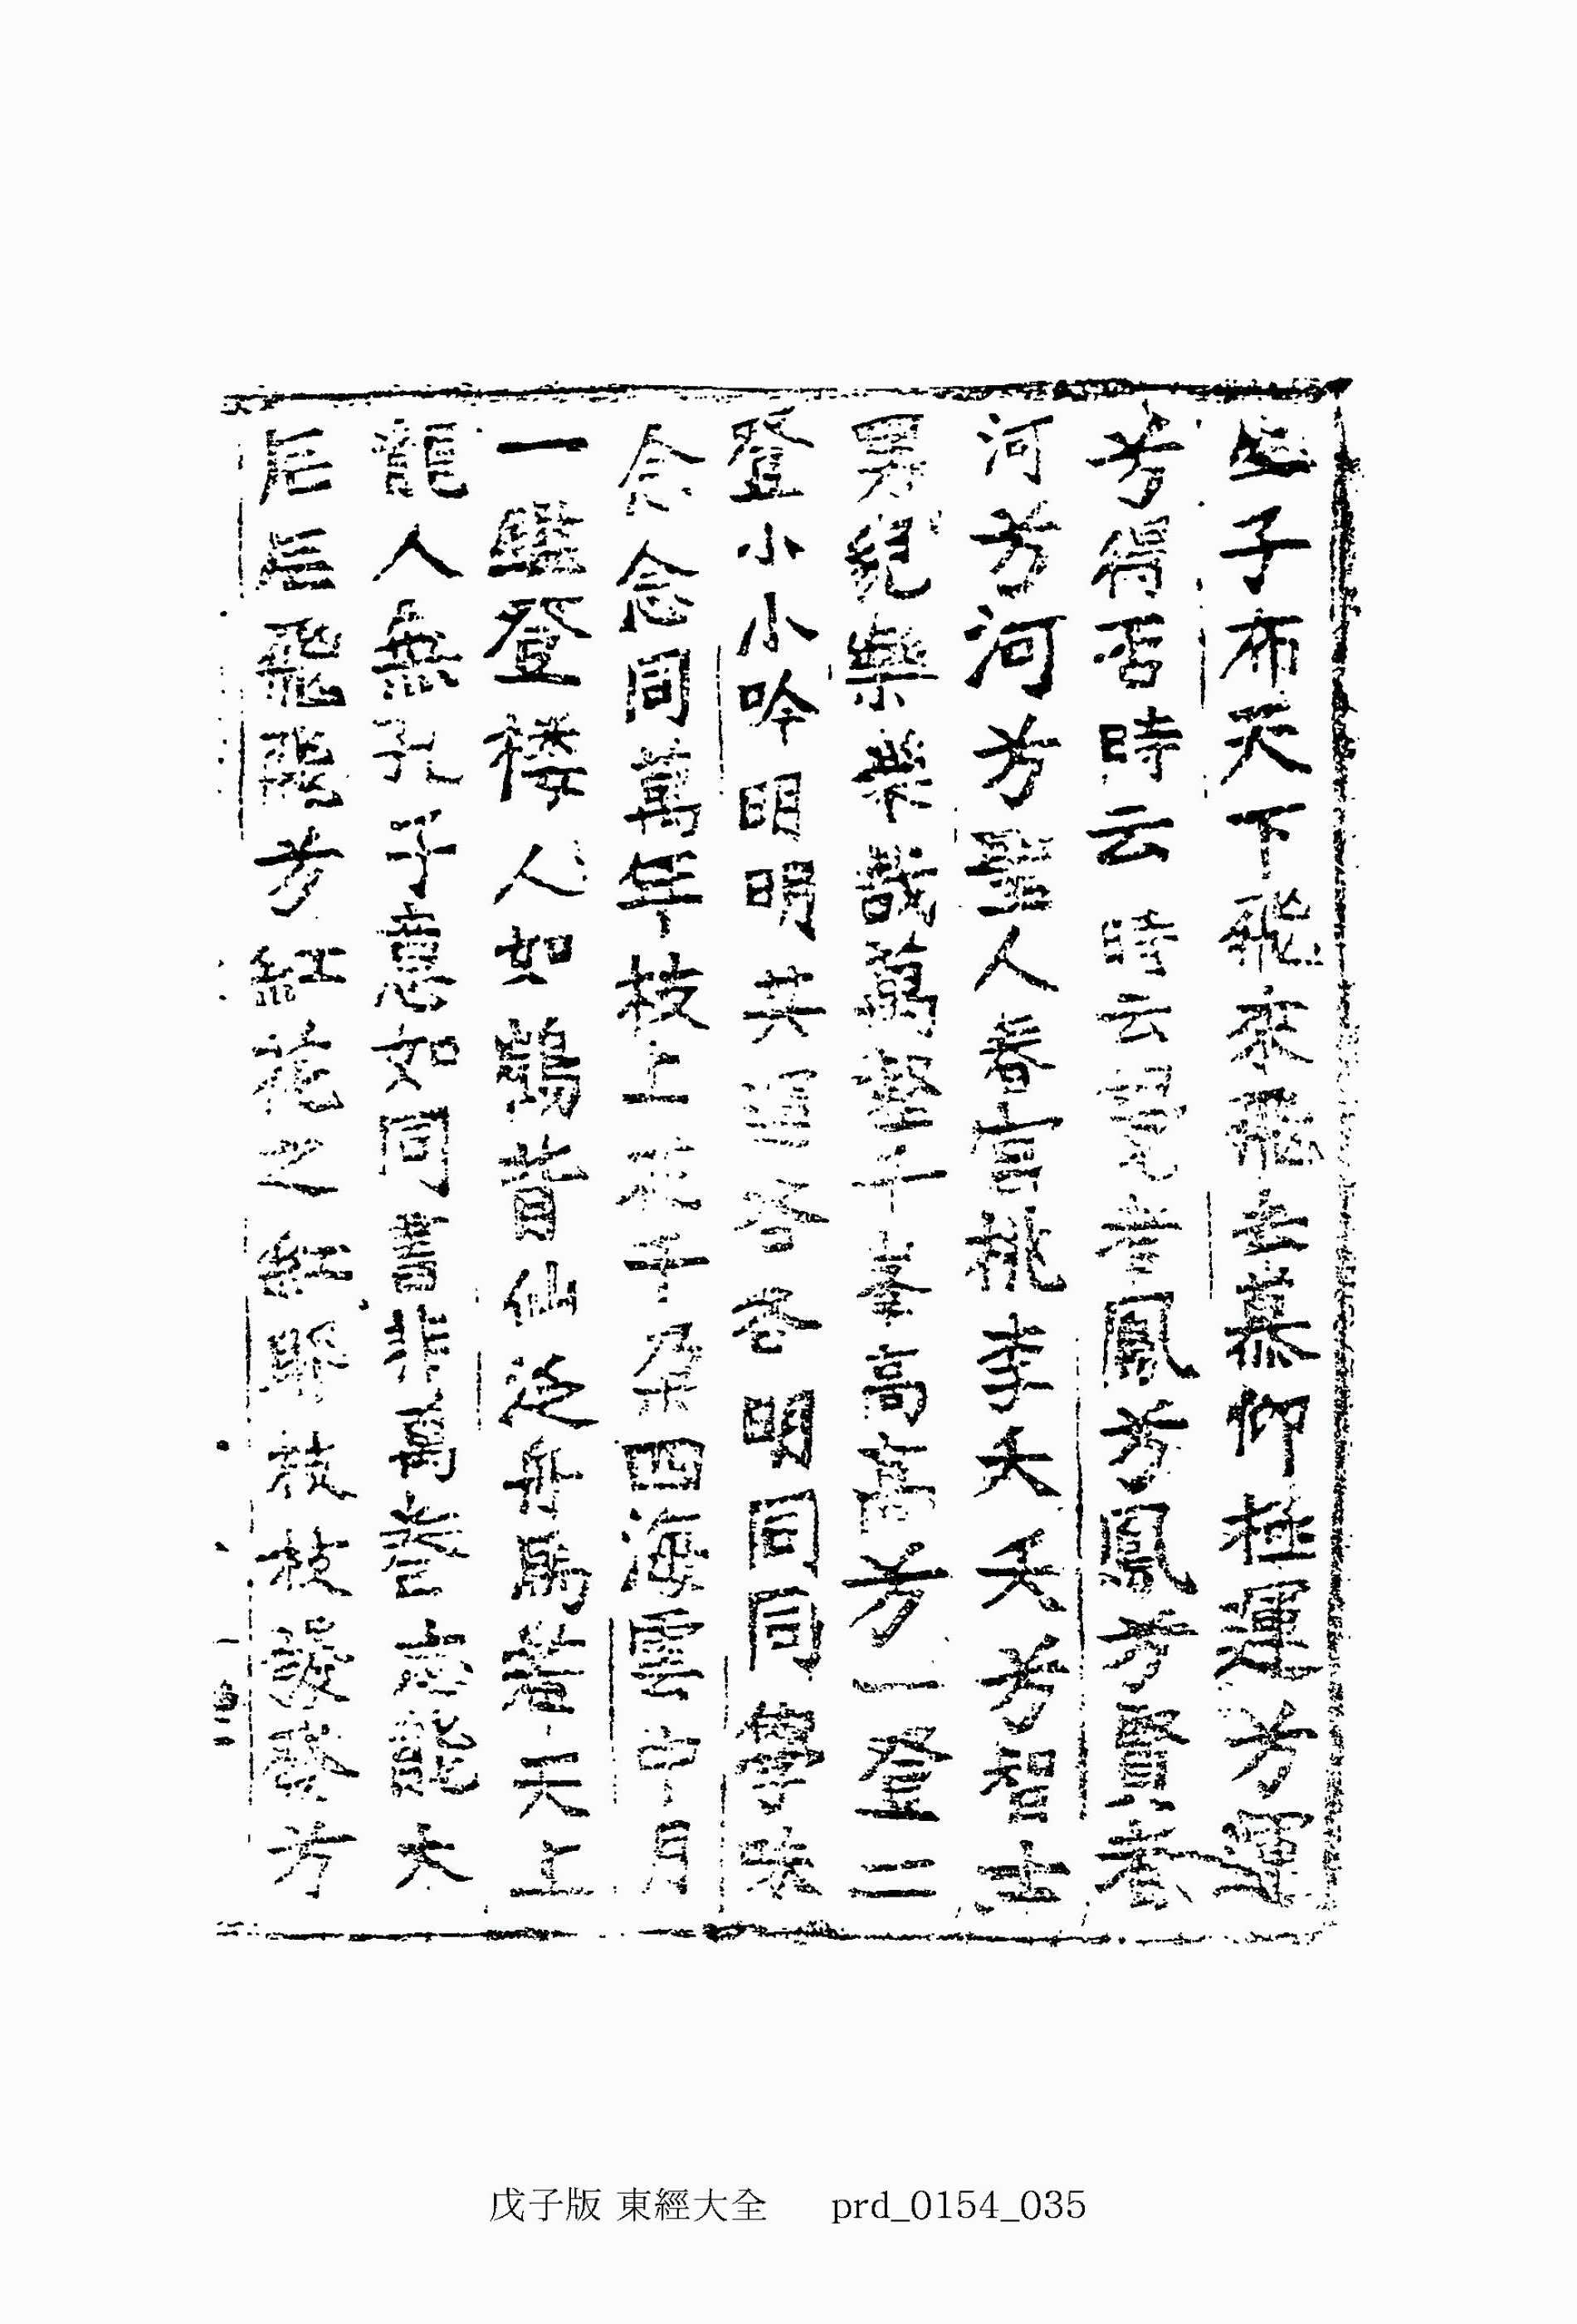 生子布天下飛來飛去慕仰極運兮運
兮得否時云時云覺者鳳兮鳳兮賢者
河兮河兮聖人春宮桃李夭夭兮智士
男兒樂樂哉萬壑千峯高高兮一登二
登小小吟明明其運各各明同同學味
念念同萬年枝上花千朶四海雲中月
一鑑登樓人如鶴背仙泛舟馬若天上
龍人無孔子意如同書非萬卷志能大
片片飛飛兮紅花之紅耶枝枝發發兮
戊子版 東經大全 prd_0154_035